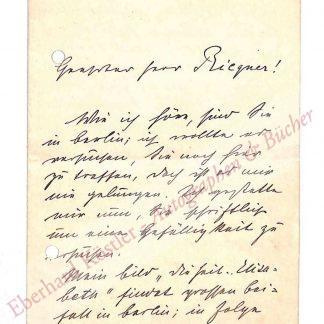 Geehrter Herr Riegner!
Wie ich höre, sind Sie
in Berlin; ich wollte es
versuchen, Sie noch hier
zu treffen, doch ist es mir
nie gelungen. Sie gestatten
mir nun, Sie schriftlich
um eine Gefälligkeit zu
ersuchen.
Mein Bild „Die heil. Elisa-
beth" findet grossen Bei-
fall in Berlin; in Folge
Eberhard Köstler Autographen & Bücher